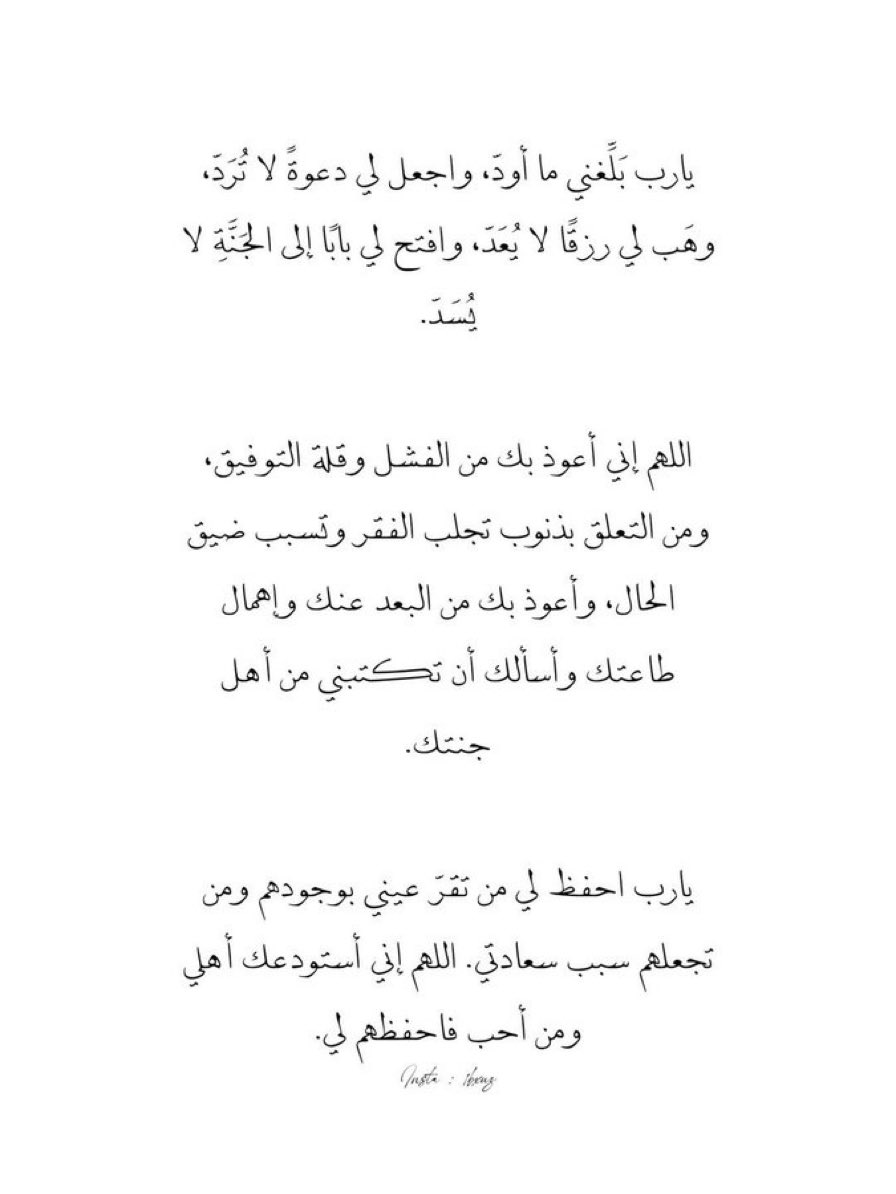 يارب بَلِّغني ما أودّ، واجعل لي دعوةً لا تُرَدّ،
وهَب لي رزقًا لا يُعَدّ، وافتح لي بابًا إلى الجَنَّةِ لا
يُسَدّ.
اللهم إني أعوذ بك من الفشل وقلة التوفيق،
ومن التعلق بذنوب تجلب الفقر وتسبب ضيق
الحال، وأعوذ بك من البعد عنك وإهمال
طاعتك وأسألك أن تكتبني من أهل
جنتك.
يارب احفظ لي من تقرّ عيني بوجودهم ومن
تجعلهم سبب سعادتي. اللهم إني أستودعك أهلي
ومن أحب فاحفظهم لي.
Insta :